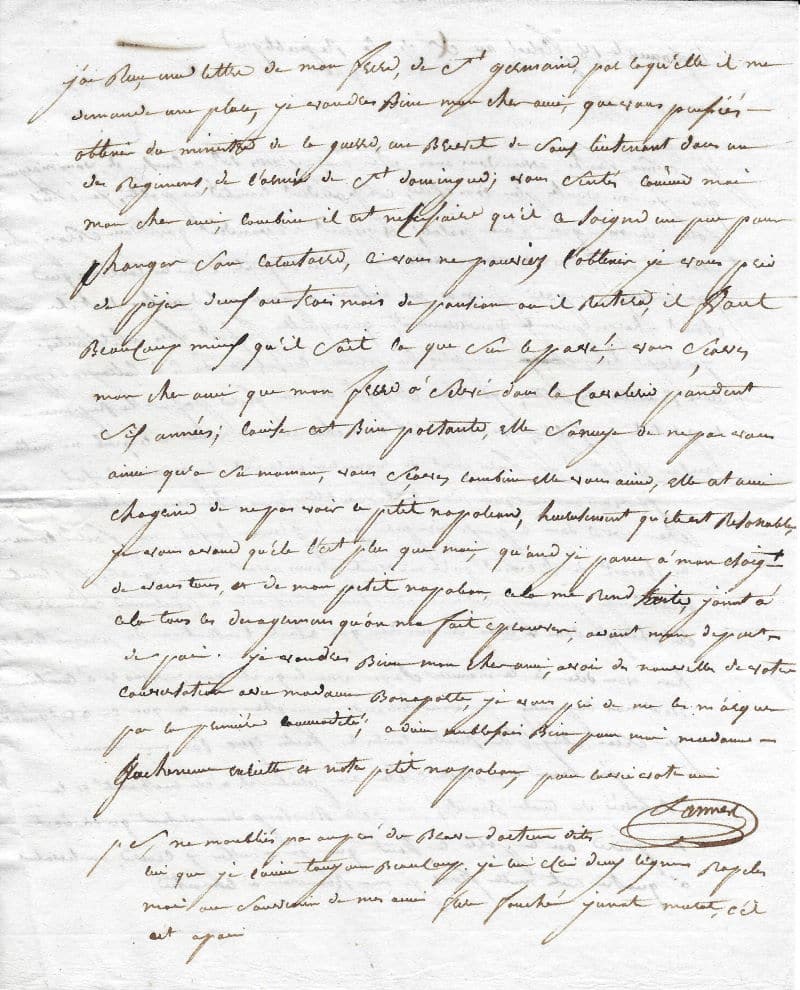 j'ai Reçu une lettre de mon frere, de St germain par laqu'elle il me
demande une place, je voudrès Bien mon cher ami, que vous pussiés
obtenir du ministre de la guerre, un Brevet de sous lieutenant dans un
des Regimens, de l'armée de St domingue; vous sentés comme moi
mon cher ami, combien il est nessessaire qu'il s'eloigne un peu pour
changer son caractaire, si vous ne pouviez l'obtenir je vous prie
de peÿer deux ou trois mois de pansion ou il Restera, il vaut
Beaucoup mieux qu'il soit la que sur le pavé; vous sçaves
mon cher ami que mon frere à servi dans la Cavalerie pandent
six années; louise est Bien portante, elle s'anuye de ne pas vous
ainsi qu'a sa maman, vous sçaves combien elle vous aime, elle est aussi
chagrine de ne pas voir le petit napoleon, hureusement qu'ele est Resonable,
je vous avoue qu'ele l'est plus que moi, quand je panse à mon eloigt
de vous tous, et de mon petit napoleon, cela me Rend triste, joint à
cela tous les desagremens qu'on ma fait eprouver, avant mon depart
de paris. je voudrès Bien mon cher ami, avoir des nouvelles de votre
conversation avec madame Bonaparte, je vous prie de me les marquer
par la premiere commodité; adieu Bien pour moi madame
et notre petit napoleon, pour la vie votre ami
Lannes
p S ne moubliés pas aupres du Brave d'acteur dites
lui que je l'aime toujour Beaucoup je lui deux lignes Rapeles
moi au souvenir de mes amis fouché junot murat,
est a paris